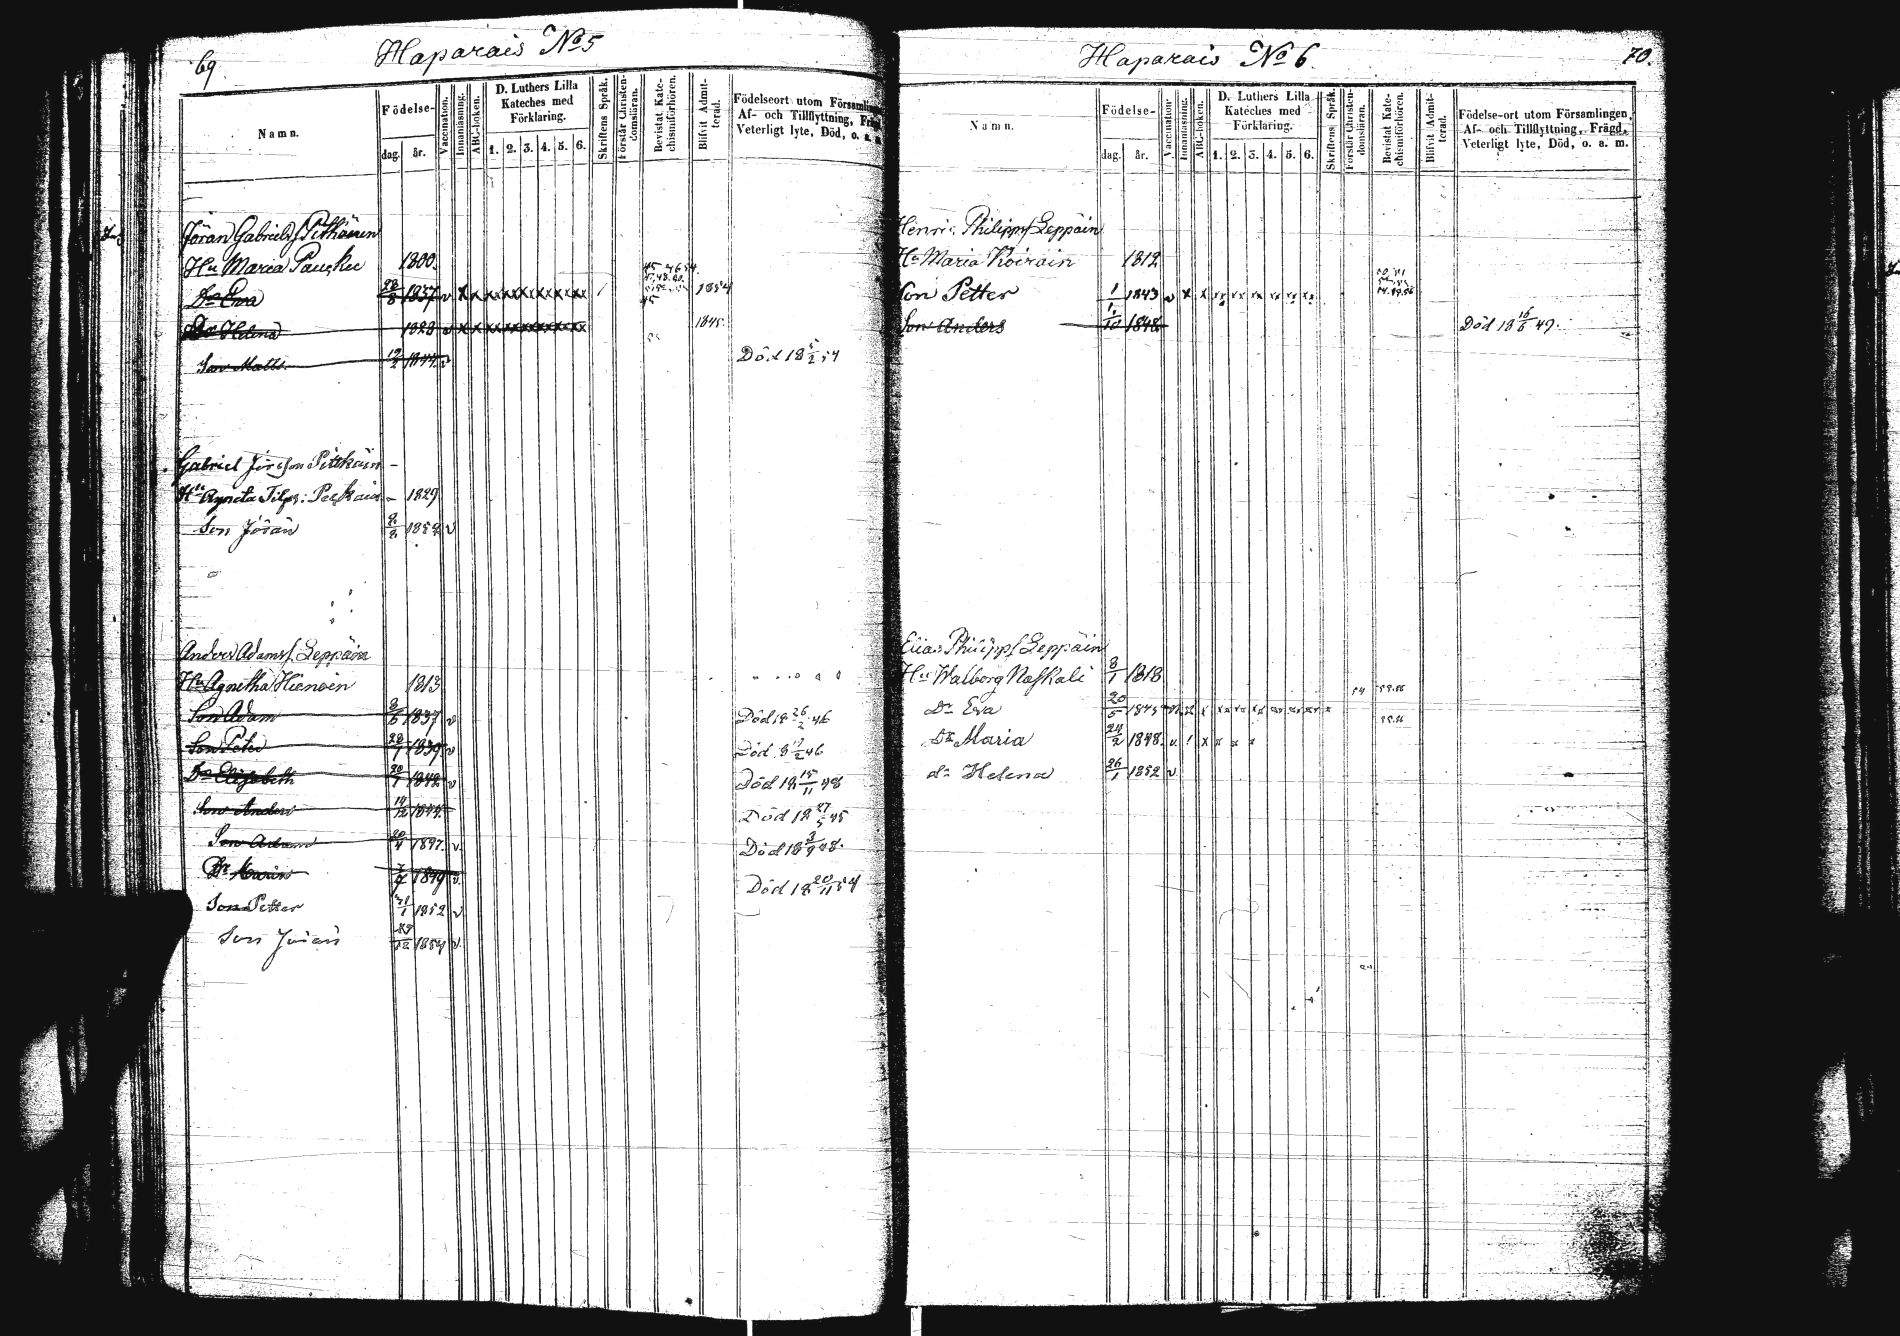 69
Haparais No 5
Namn.
Födelse-
dag.
år.
Vaccination.
Innanläsning.
ABC-boken.
D. Luthers Lilla
Kateches med
Förklaring.
1. 2. 3. 4. 5. 6.
Skriftens Språk.
Förstår Christen-
domsläran.
Bevistat Kate-
chismiförhören.
Blifvit Admit-
terad.
Födelseort utom Församlin
Af- och Tillflyttning, Fräg
Veterligt lyte, Död, o. a. m
Jöran Gabrielsf Pitkänen
Hu Maria Paukku 1800.
Dr Eva 28/8 1837 v x x xx xx xx xx xx xx 1854
Dr Helena 1828 v x x xx xx xx xx xx xx 1845.
Son Matts 19/2 1844 v Död 18 5/2 54
Gabriel Jörsson Pitkäin -
Hu Agneta - 1829
Son Jöran 1854 v
Anders Adamsf. Leppäin
Hu Agnetha Hienoin 1813
Son Adam 1837 v Död 18 26/2 46
Son Peter 28/1 1839 v Död 18 17/2 46
Dr Elisabeth 20/1 1842 v Död 18 15/11 48
Son Anders 14/12 1844. Död 18 27/5 45
Son Adam 20/4 1847. v. Död 18 3/9 48.
Dr Maria 1849 v. Död 18 20/11 54
Son Petter 1852 v
Son Jöran 1854 v.
70.
Haparais No 6.
Namn.
Födelse-
dag.
år.
Vaccination.
Innanläsning.
ABC-boken.
D. Luthers Lilla
Kateches med
Förklaring.
1. 2. 3. 4. 5. 6.
Skriftens Språk.
Förstår Christen-
domsläran.
Bevistat Kate-
chismiförhören.
Blifvit Admit-
terad.
Födelse-ort utom Församlingen,
Af- och Tillflyttning, Frägd,
Veterligt lyte, Död, o. a. m.
Henric Philippsf Leppäin
Hu Maria Koirain 1812
Son Petter 1/1 1843 v x x xx xx xx xx xx xx
Son Anders 1/10 1848 Död 18 16/6 49.
Elias Philippsf Leppäin
Hu Walborg Naskali 8/1 1818
Dr Eva 20/5 1845 x x xx xx xx xx xx xx x 54
Dr Maria 24/2 1848. v. x x x x
dr Helena 26/1 1852 v